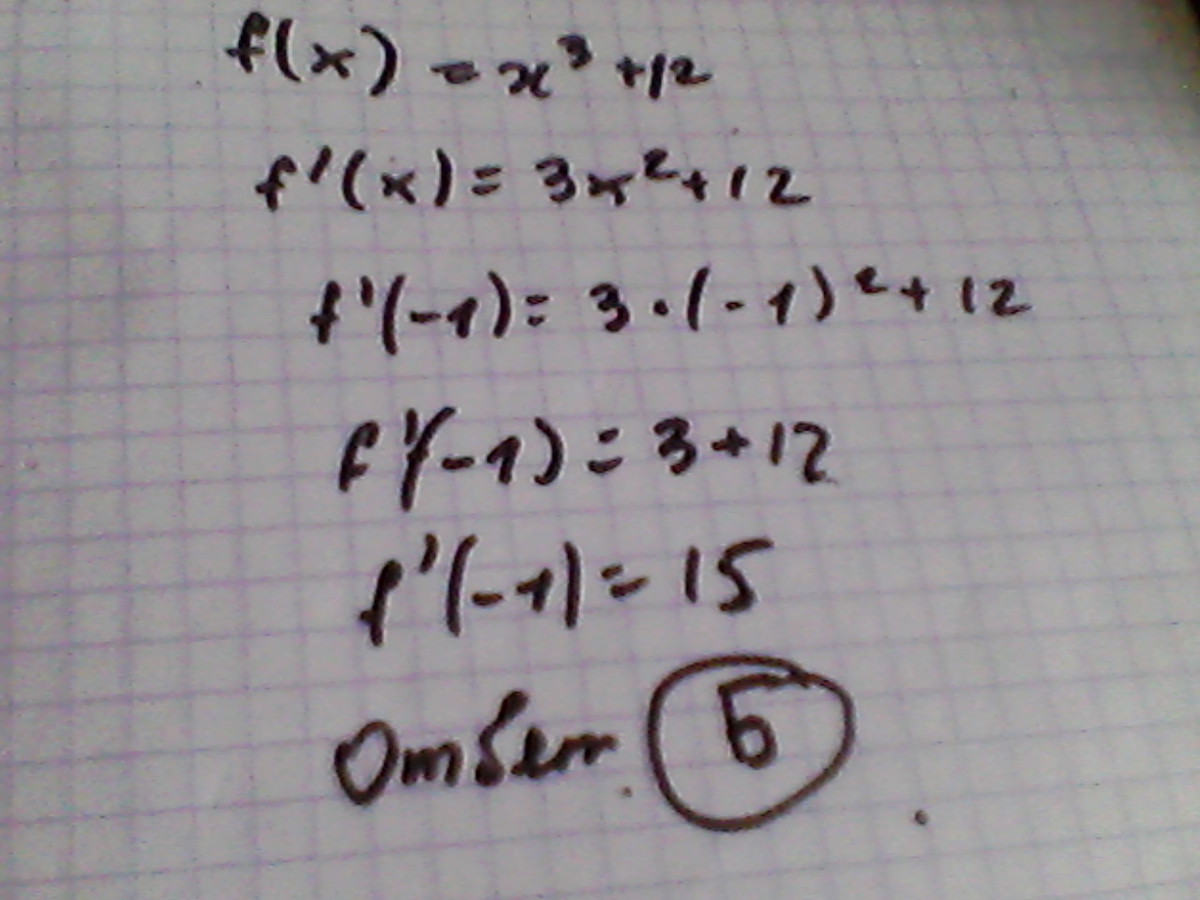 f(x) = x³ +12
f'(x) = 3x² + 12
f'(-1) = 3 · (-1)² + 12
f'(-1) = 3 + 12
f'(-1) = 15
Ответ. Б